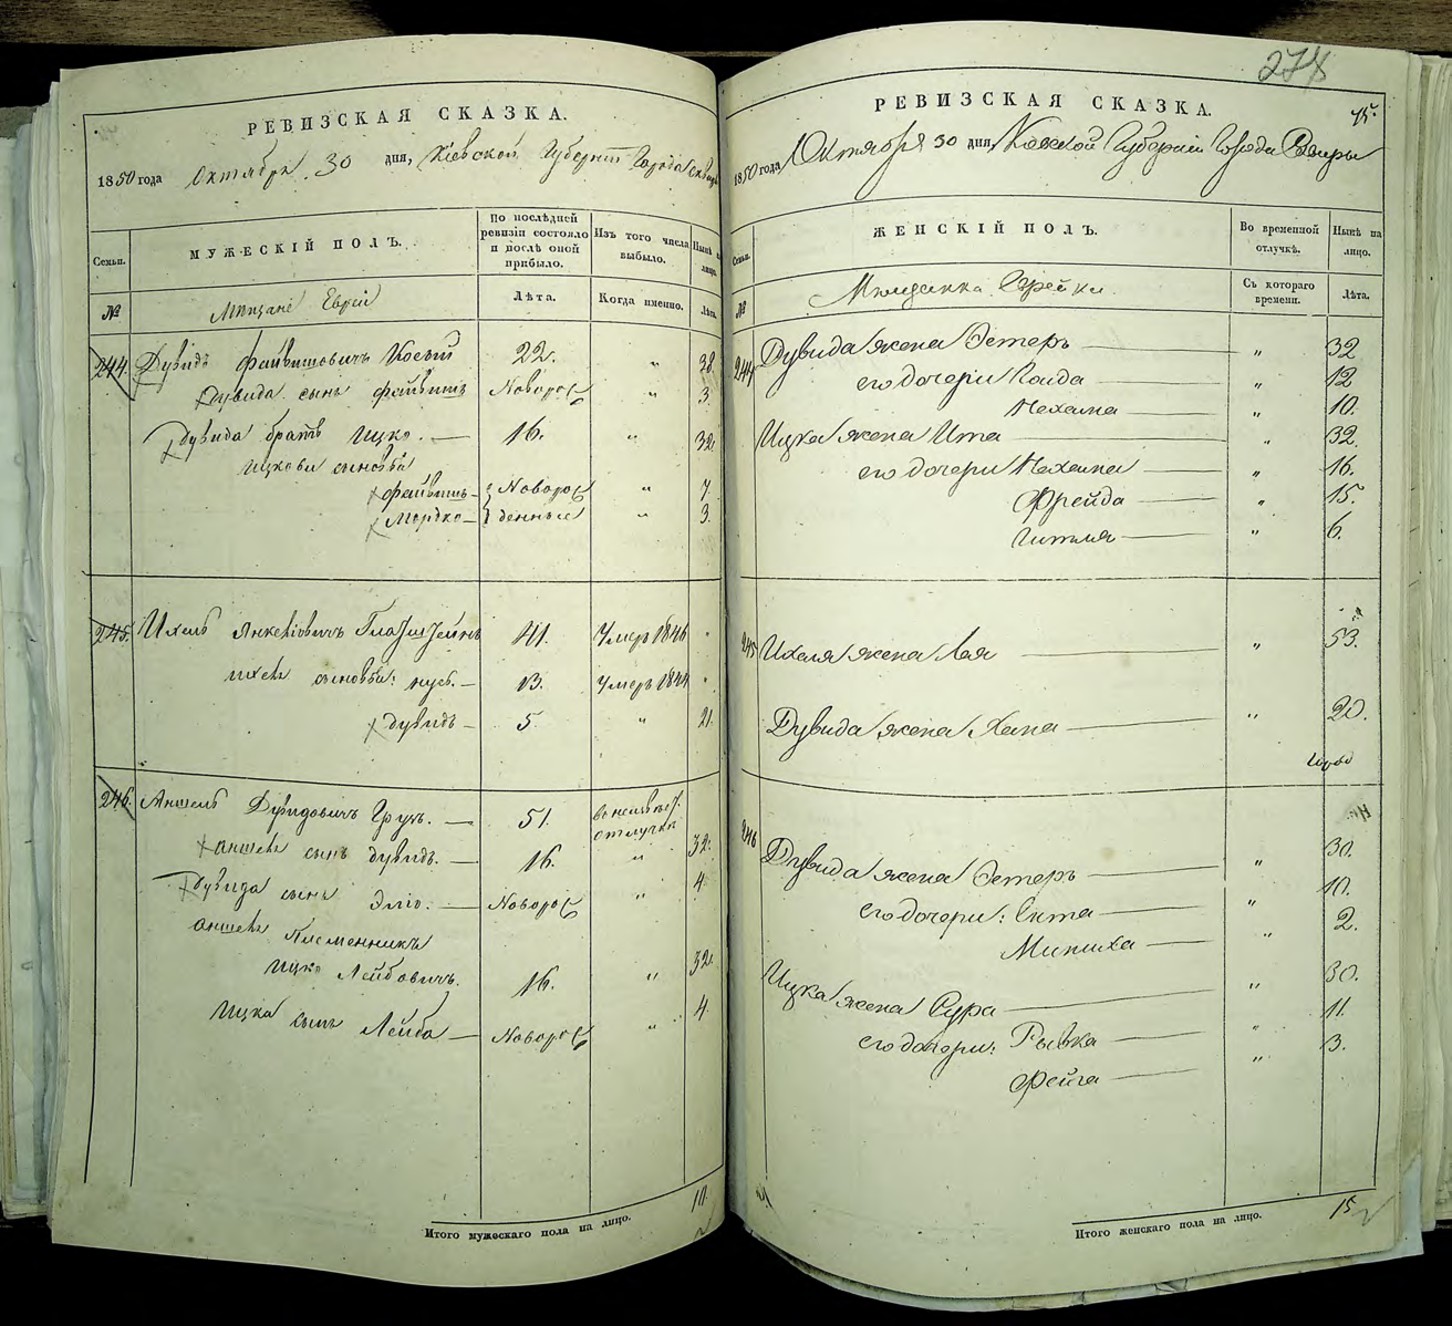 РЕВИЗСКАЯ СКАЗКА.
1850 года Октября 30 дня, Кіевской Губерніи Города Сквиры
Семьи. МУЖЕСКІЙ ПОЛЪ. По послѣдней ревизіи состояло и послѣ оной прибыло. Изъ того числа выбыло. Нынѣ на лицо.
№ Мѣщане Евреи Лѣта. Когда именно. Лѣта.
244. Дувидъ Файвишовичъ 22. " 38.
Дувида сынъ Файвишъ Новорож " 3.
Дувида братъ Ицко. — 16. " 32.
Ицкови сыновья
Файвишъ — Новорож " 7.
Мордко — денные " 3.
245. Ихель Янкеліовичъ 41. Умеръ 1846 "
Ихеля сыновья: Нусъ. — 13. Умеръ 1844 "
Дувидъ — 5. " 21.
246. Аншель Дувидовичъ — 51. отлучки
Аншеля сынъ Дувидъ. — 16. " 32.
Дувида сынъ Эліо. — Новорож " 4.
Аншеля Племенникъ
Ицко Лейбовичъ. 16. " 32.
Ицка сынъ Лейба — Новорож " 4.
11.
Итого мужескаго пола на лицо.
278
15.
РЕВИЗСКАЯ СКАЗКА.
1850 года Октября 30 дня, Кіевской Губерніи Города Сквиры
Семьи. ЖЕНСКІЙ ПОЛЪ. Во временной отлучкѣ. Нынѣ на лицо.
№ Мѣщанки Еврейки Съ котораго времени. Лѣта.
244 Дувида жена Эстеръ — " 32
его дочери — " 12
Нехама — " 10.
Ицка жена Ита — " 32.
его дочери Нехама — " 16.
Фрейда — " 15.
Гитля — " 6.
245 Ихеля жена Лая — " 53.
Дувида жена Хана — " 20.
246 Дувида жена Эстеръ — " 30.
его дочери: Ента — " 10.
— " 2.
Ицка жена Сура — " 30.
его дочери: Рывка — " 11.
Фейга — " 3.
15
Итого женскаго пола на лицо.